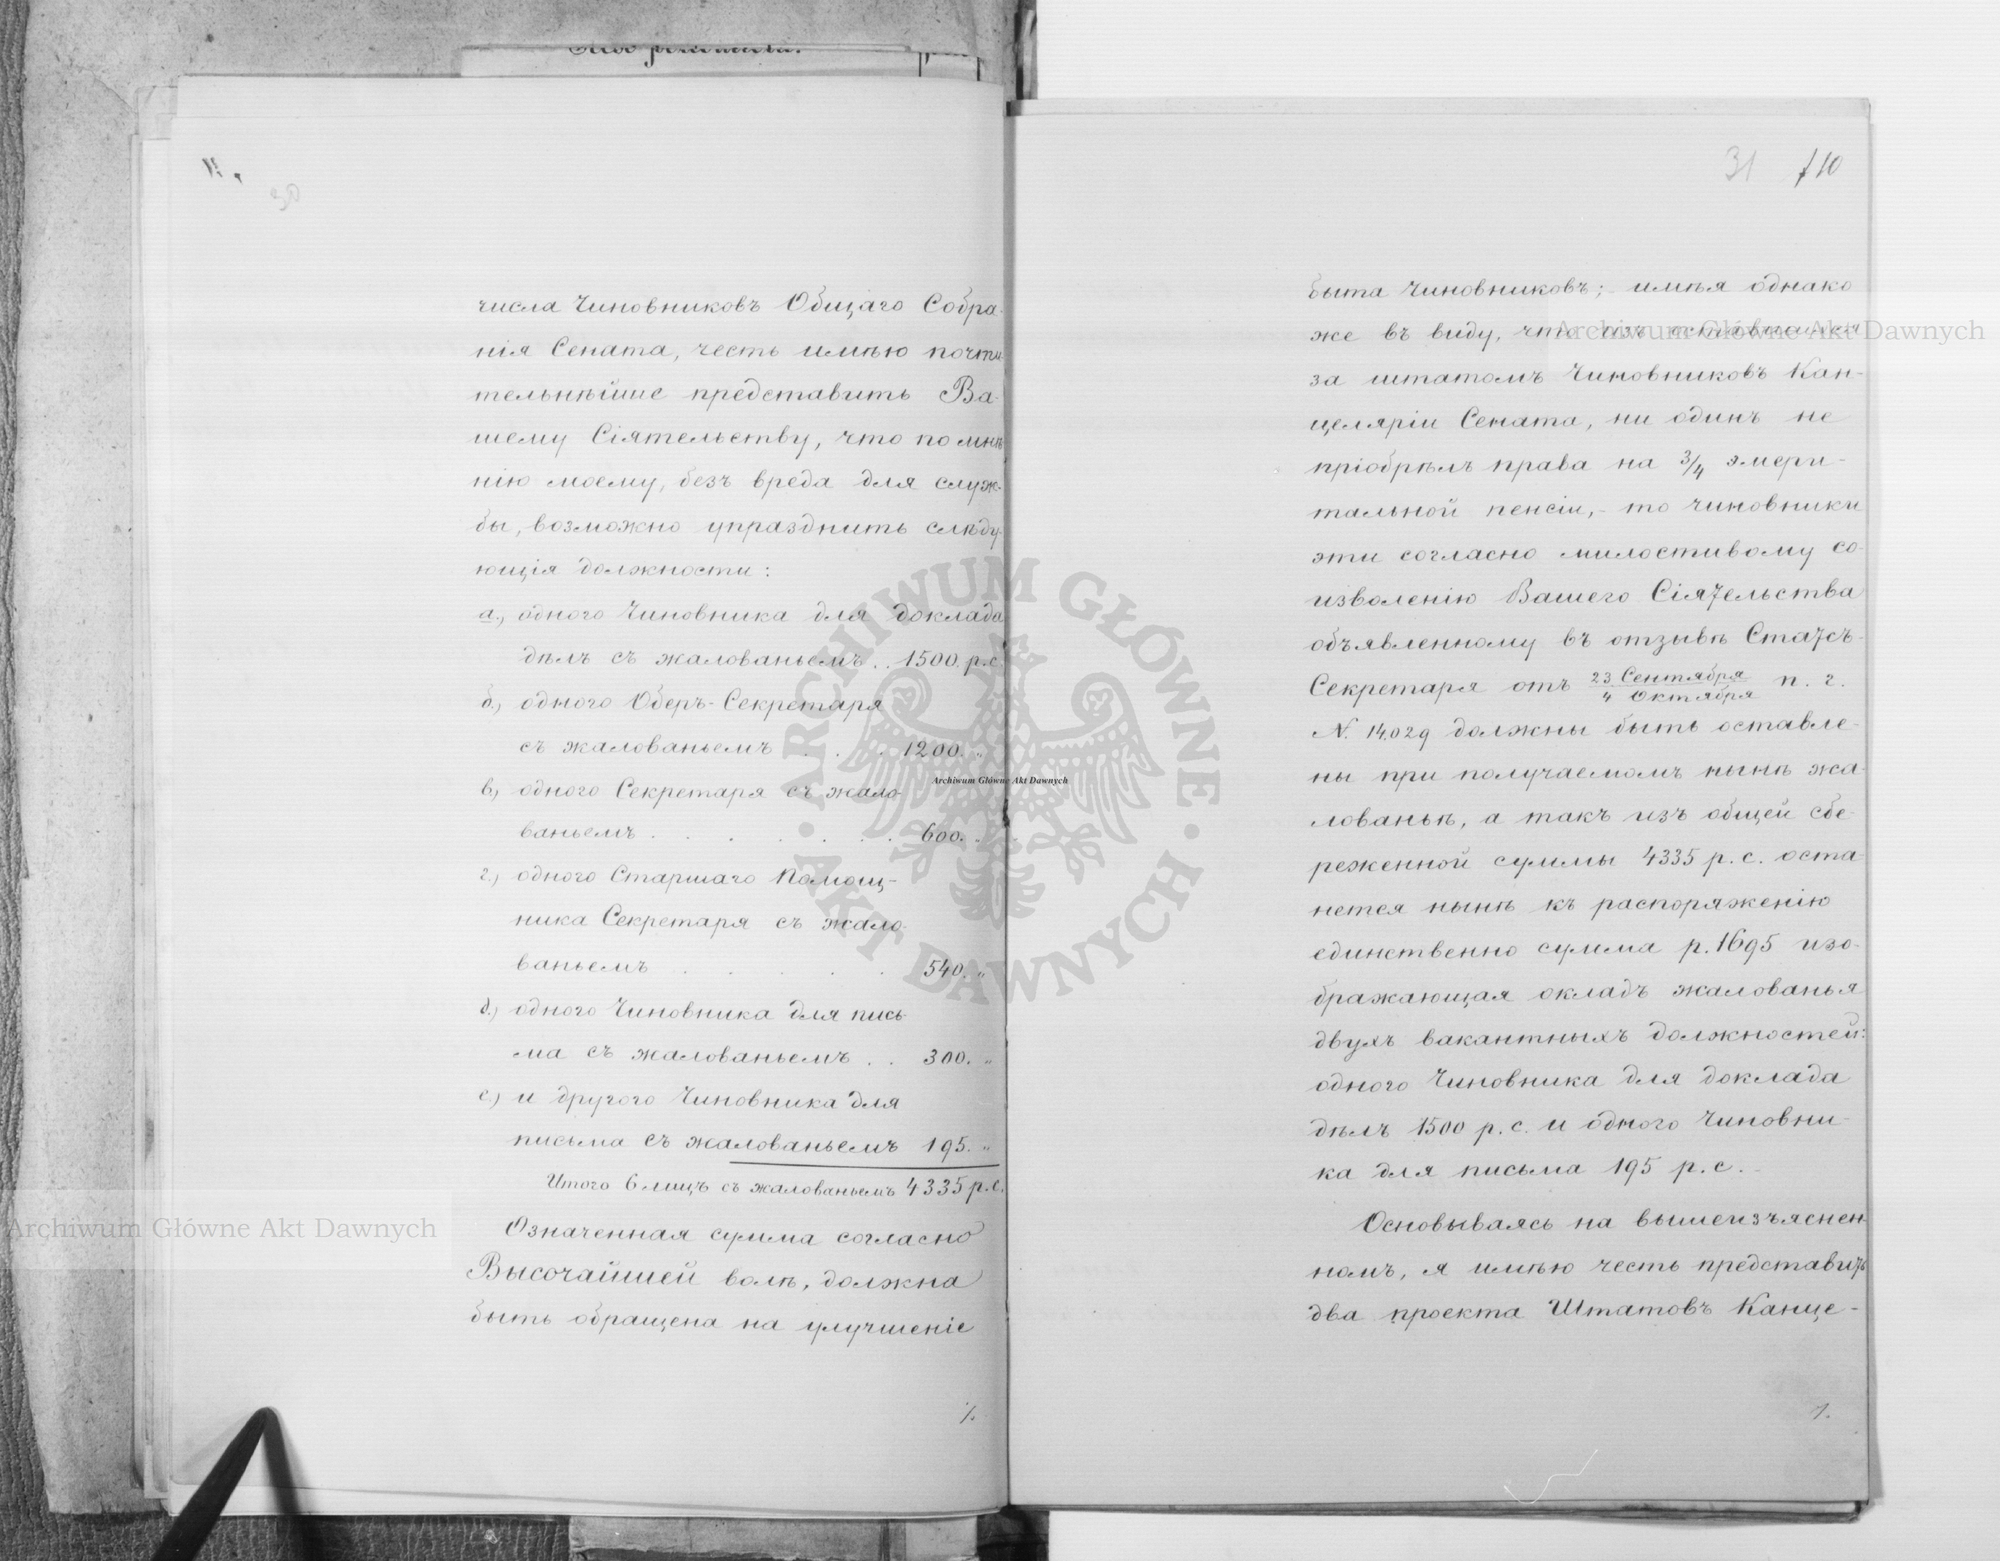 30
числа Чиновниковъ Общаго Собра-
нія Сената, честь имѣю почти
тельнѣйше представить Ва-
шему Сіятельству, что по мнѣ
нію моему, безъ вреда для служ-
бы, возможно упразднить слѣду-
ющія должности:
а., одного Чиновника для доклада
дѣлъ съ жалованьемъ . . 1500. р. с.
б., одного Оберъ-Секретаря
съ жалованьемъ . . . 1200. „
в., одного Секретаря съ жало-
ваньемъ . . . . . . 600. „
г., одного Старшаго Помощ-
ника Секретаря съ жало-
ваньемъ . . . . . 540. „
д., одного Чиновника для пись
ма съ жалованьемъ . . 300. „
е., и другого Чиновника для
письма съ жалованьемъ 195. „
Итого 6 лицъ съ жалованьемъ 4335 р. с.
Означенная сумма согласно
Высочайшей волѣ, должна
быть обращена на улучшеніе
./.
31 110
быта Чиновниковъ; имѣя однако
же въ виду, что изъ оставшихся
за штатомъ Чиновниковъ Кан-
целяріи Сената, ни одинъ не
пріобрѣлъ права на 3/4 эмери-
тальной пенсіи,- то чиновники
эти согласно милостивому со-
изволенію Вашего Сіятельства
объявленному въ отзывѣ Статсъ-
Секретаря отъ 23 Сентября/4 Октября п. г.
N. 14,029 должны быть оставле-
ны при получаемомъ нынѣ жа-
лованьѣ, а такъ изъ общей сбе-
реженной суммы 4335 р. с. оста
нется нынѣ къ распоряженію
единственно сумма р. 1695 изо-
бражающая окладъ жалованья
двухъ вакантныхъ должностей:
одного Чиновника для доклада
дѣлъ 1500 р. с. и одного Чиновни-
ка для письма 195 р. с. -
Основываясь на вышеизъяснен-
номъ, я имѣю честь представить
два проекта Штатовъ Канце-
./.
Archiwum Główne Akt Dawnych
Archiwum Główne Akt Dawnych
Archiwum Główne Akt Dawnych
ARCHIWUM GŁÓWNE • AKT DAWNYCH •